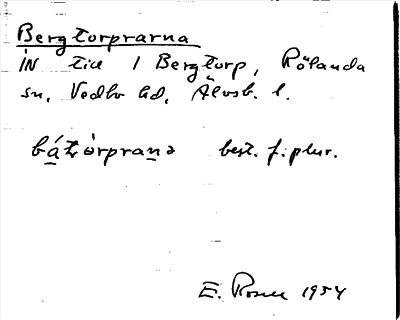 Bergtorprarna
IN till 1 Bergtorp, Rölanda
sn, Vedbo hd, Älvsb. l.
bátòrpranə best. f. plur.
E. Rosell 1954